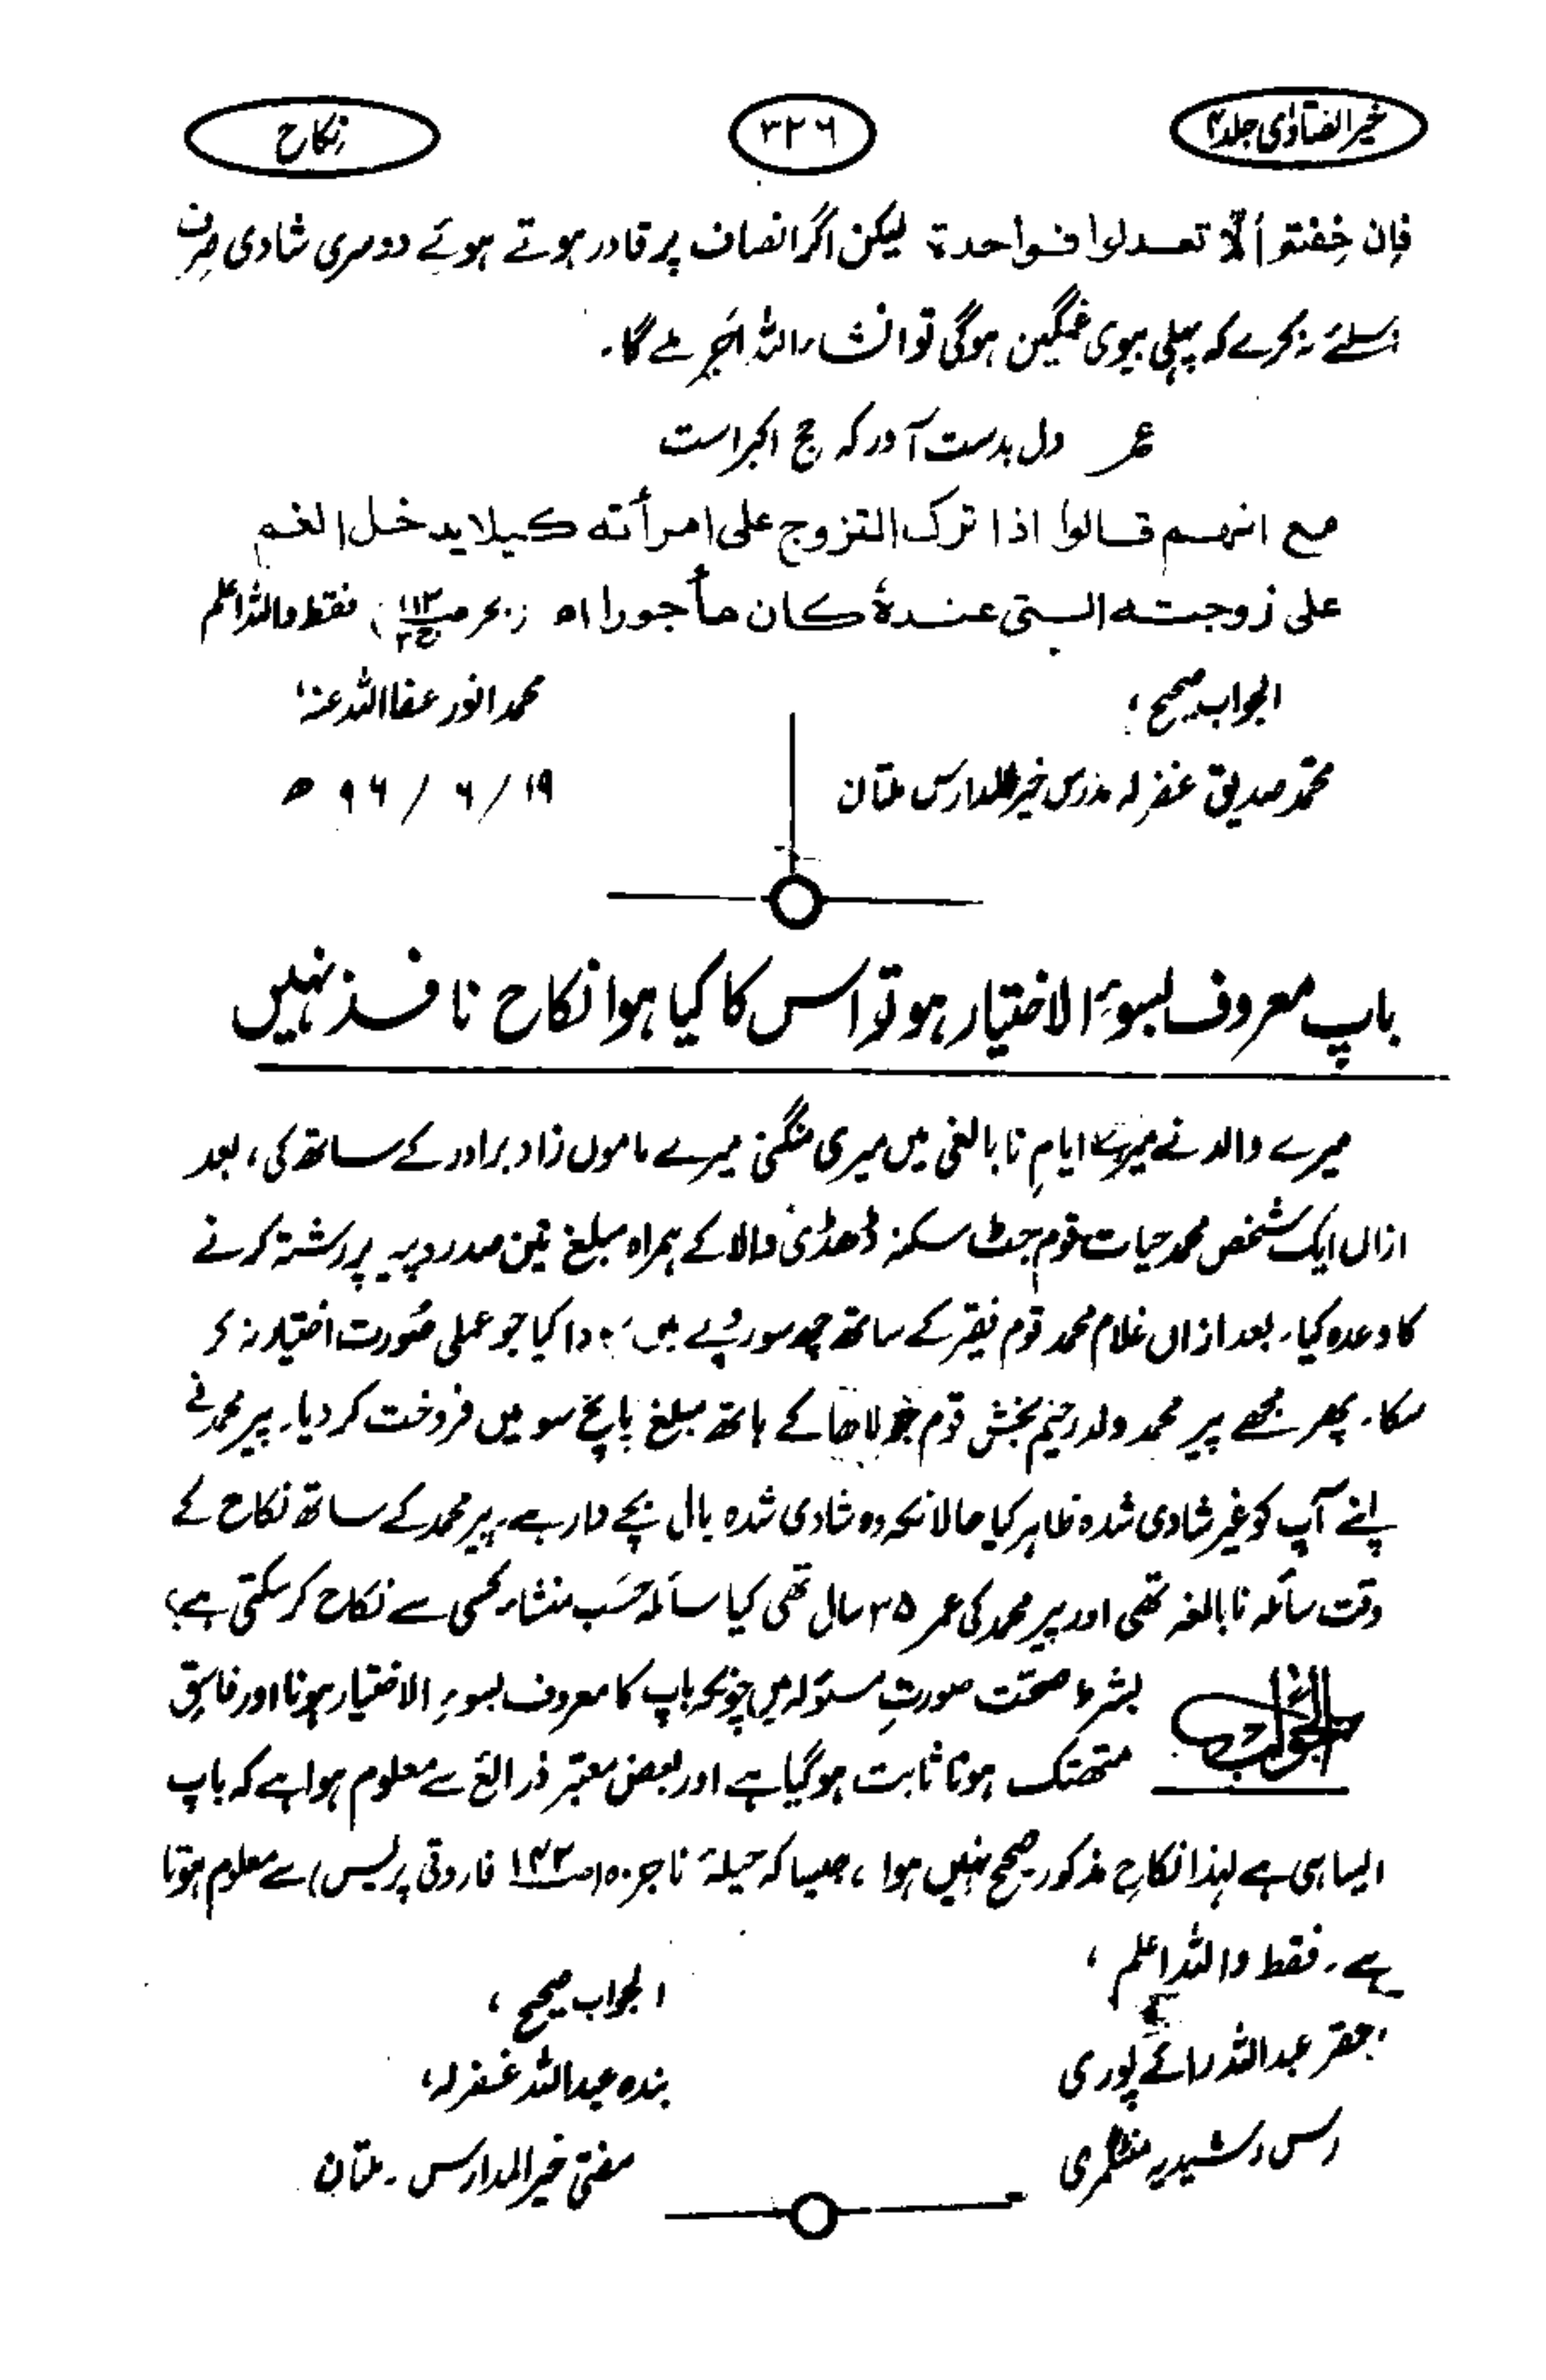 خیر الفتاویٰ جلد ۴
۳۲۶
نکاح
فإن خفتم ألّا تعدلوا فواحدة لیکن اگر انصاف پر قادر ہوتے ہوئے دوسری شادی صرف
اسلئے نہ کرے کہ پہلی بیوی غمگین ہوگی تو انشاء اللہ اجر ملے گا۔
ع دل بدست آور کہ حج اکبر است
مع انهم قالوا اذا ترک التزوج علی امرأته کیلا یدخل الغم
علی زوجته التی عندهٗ کان مأجورا اھ (بحر ص۱۱۳ ج۳)، فقط واللہ اعلم
الجواب صحیح،
محمد انور عفا اللہ عنہ،
محمد صدیق غفرلہ مدرس خیر المدارس ملتان
۱۹ / ۶ / ۹۶ ھ
باپ معروف بسوء الاختیار ہو تو اس کا کیا ہوا نکاح نافذ نہیں
میرے والد نے میرے ایامِ نابالغی میں میری منگنی میرے ماموں زاد برادر کے ساتھ کی، بعد
ازاں ایک شخص محمد حیات قوم جٹ سکنہ ڈھڈی والا کے ہمراہ مبلغ تین صد روپیہ پر رشتہ کرنے
کا وعدہ کیا۔ بعد ازاں غلام محمد قوم فقیر کے ساتھ چھ سو روپے میں سودا کیا جو عملی صُورت اختیار نہ کر
سکا۔ پھر مجھے پیر محمد ولد رحیم بخش قوم جولاھا کے ہاتھ مبلغ پانچ سو میں فروخت کر دیا۔ پیر محمد نے
اپنے آپ کو غیر شادی شدہ ظاہر کیا حالانکہ وہ شادی شدہ بال بچے دار ہے۔ پیر محمد کے ساتھ نکاح کے
وقت سائلہ نابالغہ تھی اور پیر محمد کی عمر ۳۵ سال تھی کیا سائلہ حسَب منشاء کسی سے نکاح کر سکتی ہے؟
الجواب
بشرط صحت صورتِ مسئولہ میں چونکہ باپ کا معروف بسوءِ الاختیار ہونا اور فاسق
متھتک ہونا ثابت ہوگیا ہے اور بعض معتبر ذرائع سے معلوم ہوا ہے کہ باپ
ایسا ہی ہے لہذا نکاحِ مذکور صحیح نہیں ہوا، جیسا کہ حیلۂ ناجزہ (ص۱۴۳ فاروقی پریس) سے معلوم ہوتا
ہے۔ فقط واللہ اعلم،
الجواب صحیح،
احقر عبد اللہ رائے پوری
بندہ عبد اللہ غفرلہ،
رشیدیہ منٹگمری
مفتی خیر المدارس۔ ملتان